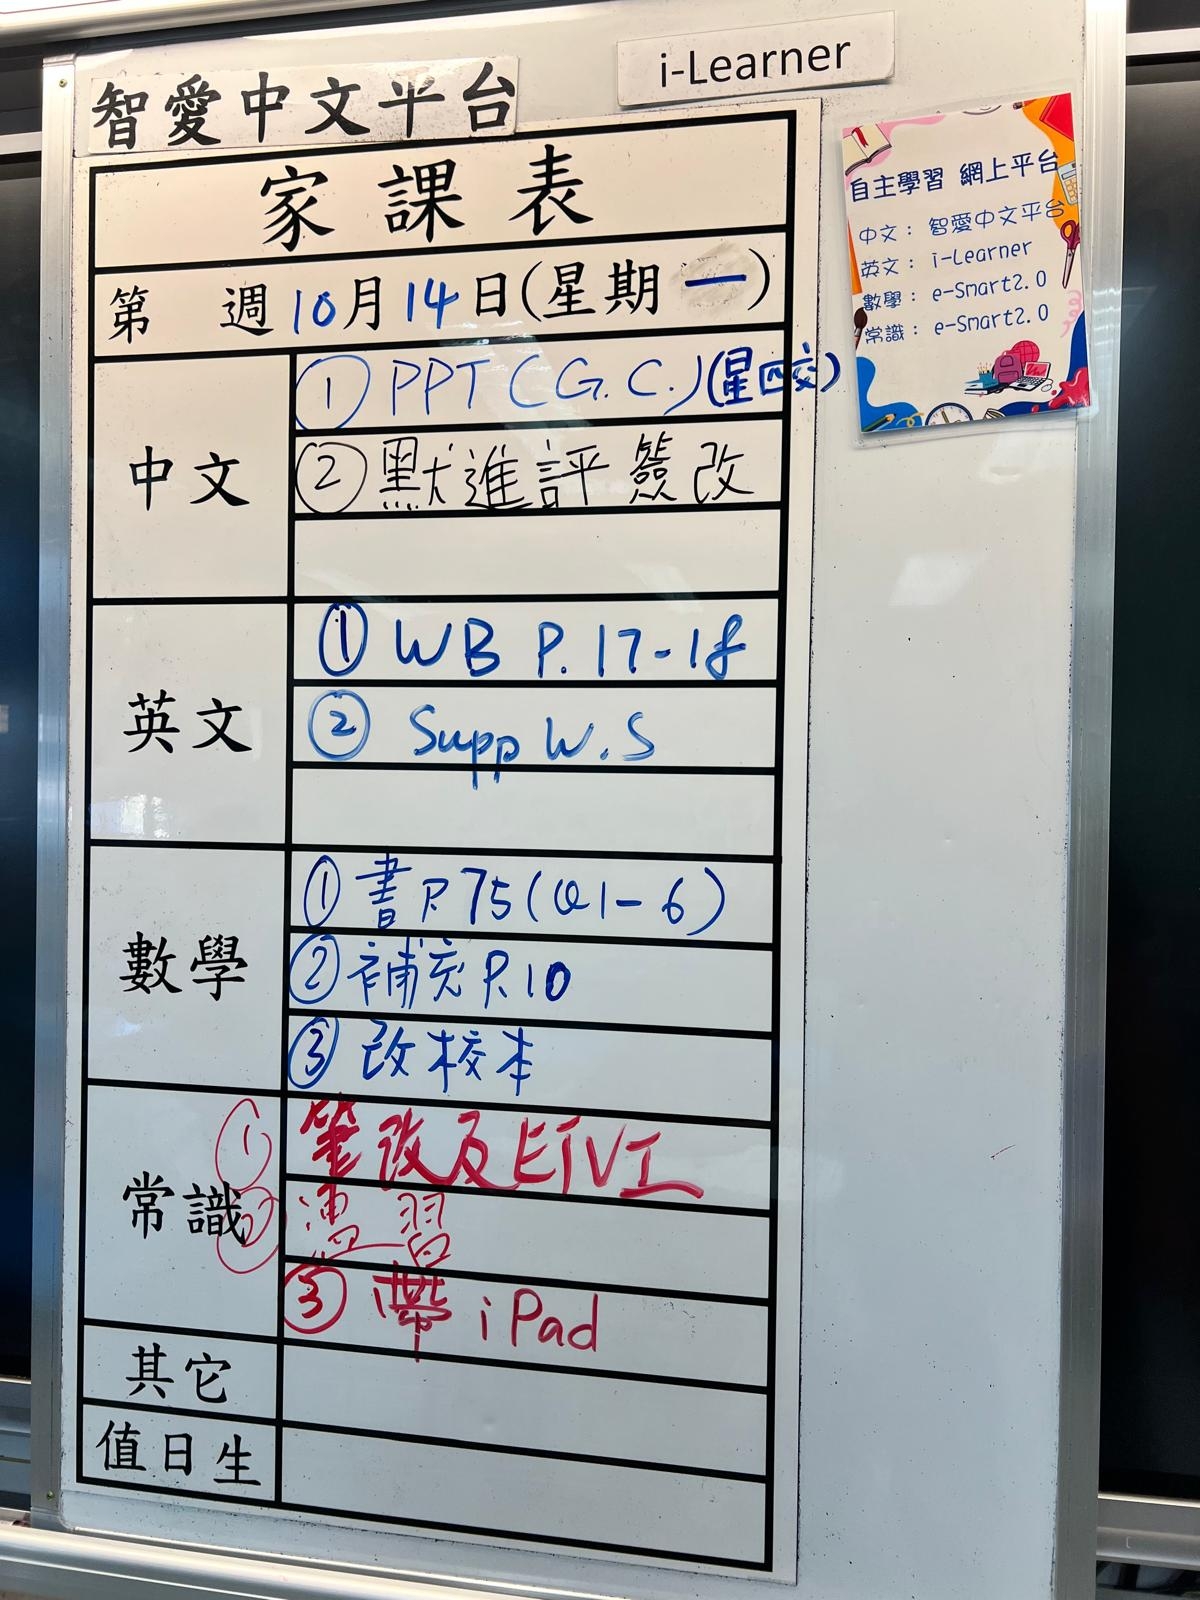 智愛中文平台
i-Learner
家課表
第 週10月14日(星期一)
中文
① PPT (G.C.)(星四交)
② 默進評 簽改
英文
① WB P.17-18
② Supp W.S
數學
① 書P.75(Q1-6)
② 補充P.10
③ 改校本
常識
① 筆改及ETVI
② 溫習
③ 帶 iPad
其它
值日生
自主學習 網上平台
中文： 智愛中文平台
英文： i-Learner
數學： e-Smart2.0
常識： e-Smart2.0